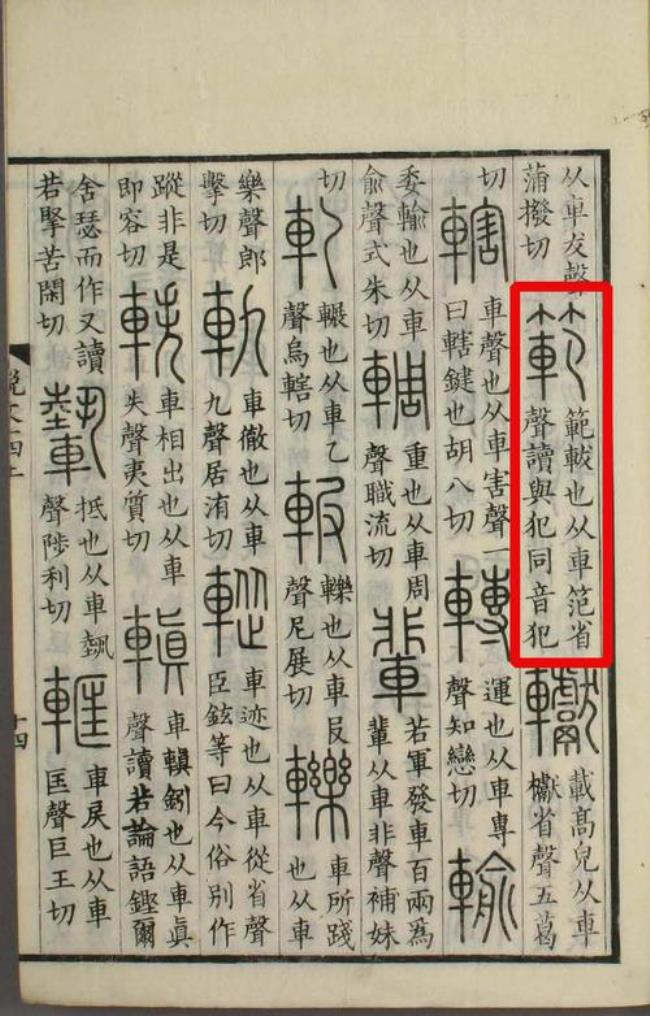 从車犮聲
蒲撥切
範
範軷也从車笵省
聲讀與犯同音犯
載高皃从車
省聲五葛
切
轄
車聲也从車害聲一
曰轄鍵也胡八切
轉
運也从車專
聲知戀切
輸
委輸也从車
俞聲式朱切
輖
重也从車周
聲職流切
輩
若軍發車百兩爲
輩从車非聲補妹
切
軋
輾也从車乙
聲烏轄切
轢也从車㞋
聲尼展切
轢
車所踐
也从車
樂聲郎
擊切
軌
車徹也从車
九聲居洧切
車迹也从車從省聲
臣鉉等曰今俗別作
蹤非是
即容切
軼
車相出也从車
失聲夷質切
車也从車眞
聲讀若論語鏗爾
舍瑟而作又讀
若掔苦閑切
抵也从車
聲陟利切
軭
車戾也从車
匡聲巨王切
十四